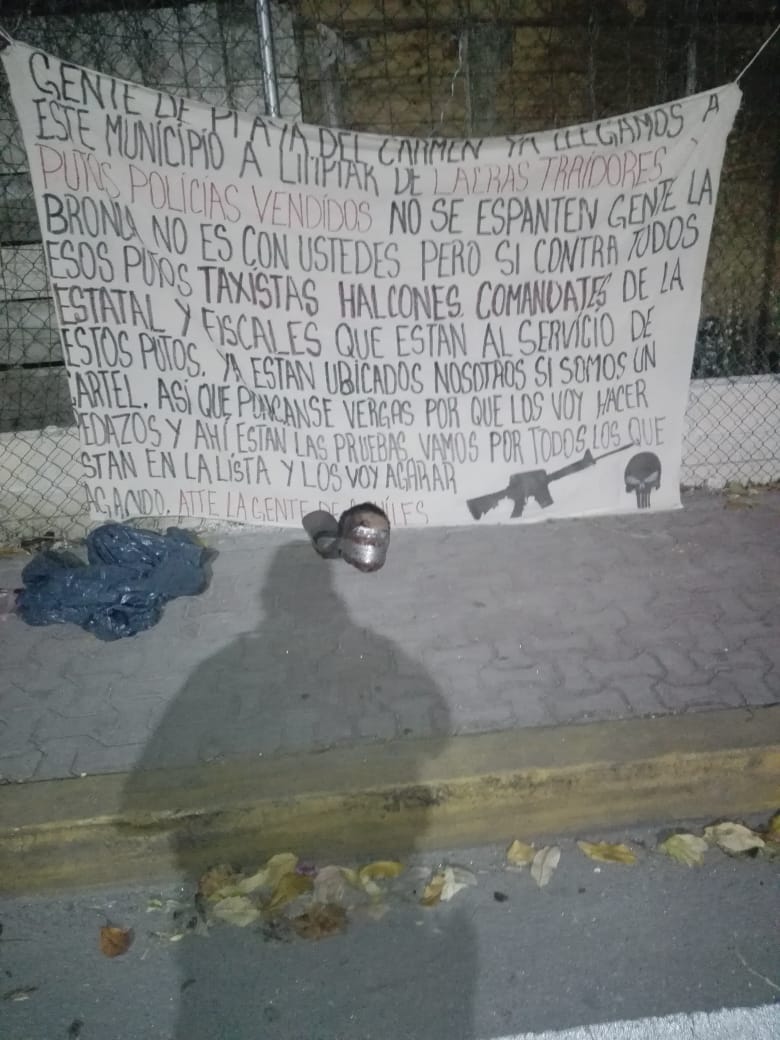 GENTE DE PLAYA DEL CARMEN YA LLEGAMOS A
ESTE MUNICIPIO A LIMPIAR DE LACRAS TRAIDORES Y
PUTOS POLICÍAS VENDÍDOS NO SE ESPANTEN GENTE LA
BRONCA NO ES CON USTEDES PERO SI CONTRA TODOS
ESOS PUTOS TAXÍSTAS HALCONES COMANDATES DE LA
ESTATAL Y FISCALES QUE ESTAN AL SERVICIO DE
ESTOS PUTOS. YA ESTAN UBICADOS NOSOTROS SI SOMOS UN
CARTEL. ASÍ QUE PONGANSE VERGAS POR QUE LOS VOY HACER
PEDAZOS Y AHÍ ESTAN LAS PRUEBAS. VAMOS POR TODOS LOS QUE
STAN EN LA LÍSTA Y LOS VOY AGARAR
ATTE LA GENTE DE